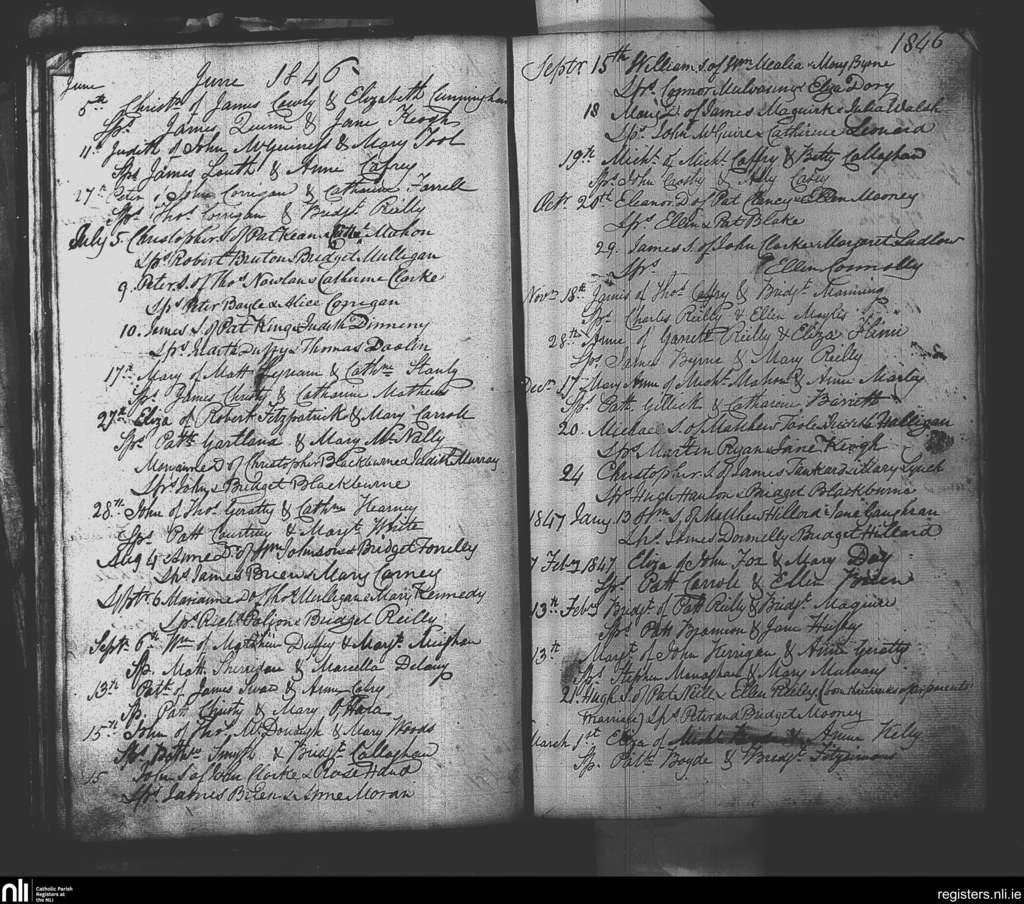 June
June 1846
5th Christr of James Cewly & Elizabeth Cunningham
Sps James Quinn & Jane Keogh
11th Judith of John McGuiness & Mary Tool
Sps James Louth & Anne Cafrey
27th Peter of John Corrigan & Catharine Farrell
Sps Thos Corrigan & Bridgt Reilly
July 5. Christopher S of Pat Kean & Mohon
Sps Robert Bruton & Bridget Mulligan
9. Peter S. of Thos Nowlan & Catherine Clarke
Sps Peter Boyle & Alice Corrigan
10. James S. of Pat King & Judith Dinneny
Sps Martha Duffy & Thomas Doolin
17th Mary of Matt Lynam & Cathne Stanly
Sps James Christy & Catharine Mathews
27th Eliza of Robert Fitzpatrick & Mary Carroll
Sps Patk Gartland & Mary McNally
Maryanne D of Christopher Blackburne & Judith Murray
Sps John & Bridget Blackburne
28th John of Thos Geratty & Cathne Kearney
Sps Patt Courtney & Margt White
Aug 4 Anne D. of Wm Johnson & Bridget Forrelley
Sps James Brien & Mary Carney
Septr 6 Marianne D of Thos Mulligan & Mary Kennedy
Sps Richd & Bridget Reilly
Sept. 6th Wm of Matthew Duffy & Margt Meighan
Sp. Matt Sherridan & Marcella Delany
13th Patt. of James Swan & Anne Cafry
Sp. Patt Christy & Mary O'Hara
15th John of Thos McDonough & Mary Woods
Sps Smyth & Bridgt Callaghan
15 John S of John Clarke & Rose Hand
Sps James Brien & Anne Moran
1846
Septr 15th William S. of Wm Mealia & Mary Byrne
Sps Connor Mulvany & Eliza Dory
18 Mary D. of James Maguire & Julia Walsh
Sps John McGuire & Catherine Leonard
19th Michl of Michl Caffry & Betty Callaghan
Sps John Crosby & Mary Cafry
Octr 20th Eleanor D of Pat Clancy & Ellen Mooney
Sps Ellen & Pat Blake
29. James S. of John Clarke & Margaret Ludlow
Sps Ellen Connolly
Novr 18th James of Thos Caffry & Bridgt Manning
Sps Charles Reilly & Ellen Mayles
28th Anne of Garrett Reilly & Eliza Flinn
Sps James Byrne & Mary Reilly
Decr 17 Mary Anne of Michl Mahon & Anne Martay
Sps Patt Gillick & Catharine Barrett
20. Michael S. of Matthew Toole & Mulligan
Sps Martin Ryan & Jane Keogh
24 Christopher S of James Tankard & Mary Lynch
Sps Hugh Hanlon & Bridget Blackburne
1847 Jany 13 of Wm S. of Matthew Hillard & Jane Gaughran
Sps James Donnelly Bridget Hillard
7 Feby 1847 Eliza of John Fox & Mary Day
Sps Patt Carroll & Ellen Brien
13th Feby Bridgt of Patt Reilly & Bridgt Maguire
Sps Patt Brannon & Jane Hughey
13th Margt of John Kerrigan & Anne Geratty
Sps Stephen Monaghan & Mary Mulvany
21. Hugh S. of Pat Neill & Ellen Reilley (on the of parents
marriage) Sps Peter and Bridget Mooney
March 1st Eliza of Anne Kelly
Sp. Patt Boyde & Bridgt Fitzsimons
nli Catholic Parish
Registers at
the NLI
registers.nli.ie